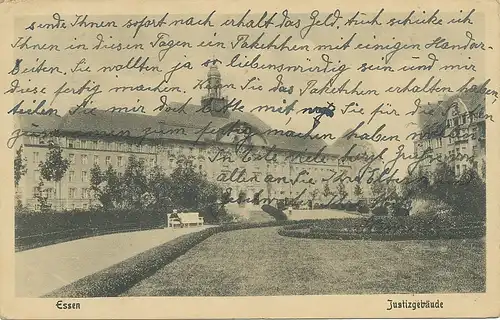 sende Ihnen sofort nach erhalt das Geld. Auch schicke ich
Ihnen in diesen Tagen ein Paketchen mit einigen Handar-
beiten. Sie wollten ja so liebenswürdig sein und mir
diese fertig machen. Wenn Sie das Paketchen erhalten haben
teilen Sie mir doch bitte mit was Sie für die
zusammen fertig machen haben wollen
In Eile viele herzl. Grüße
an Sie Ihre
Essen
Justizgebäude